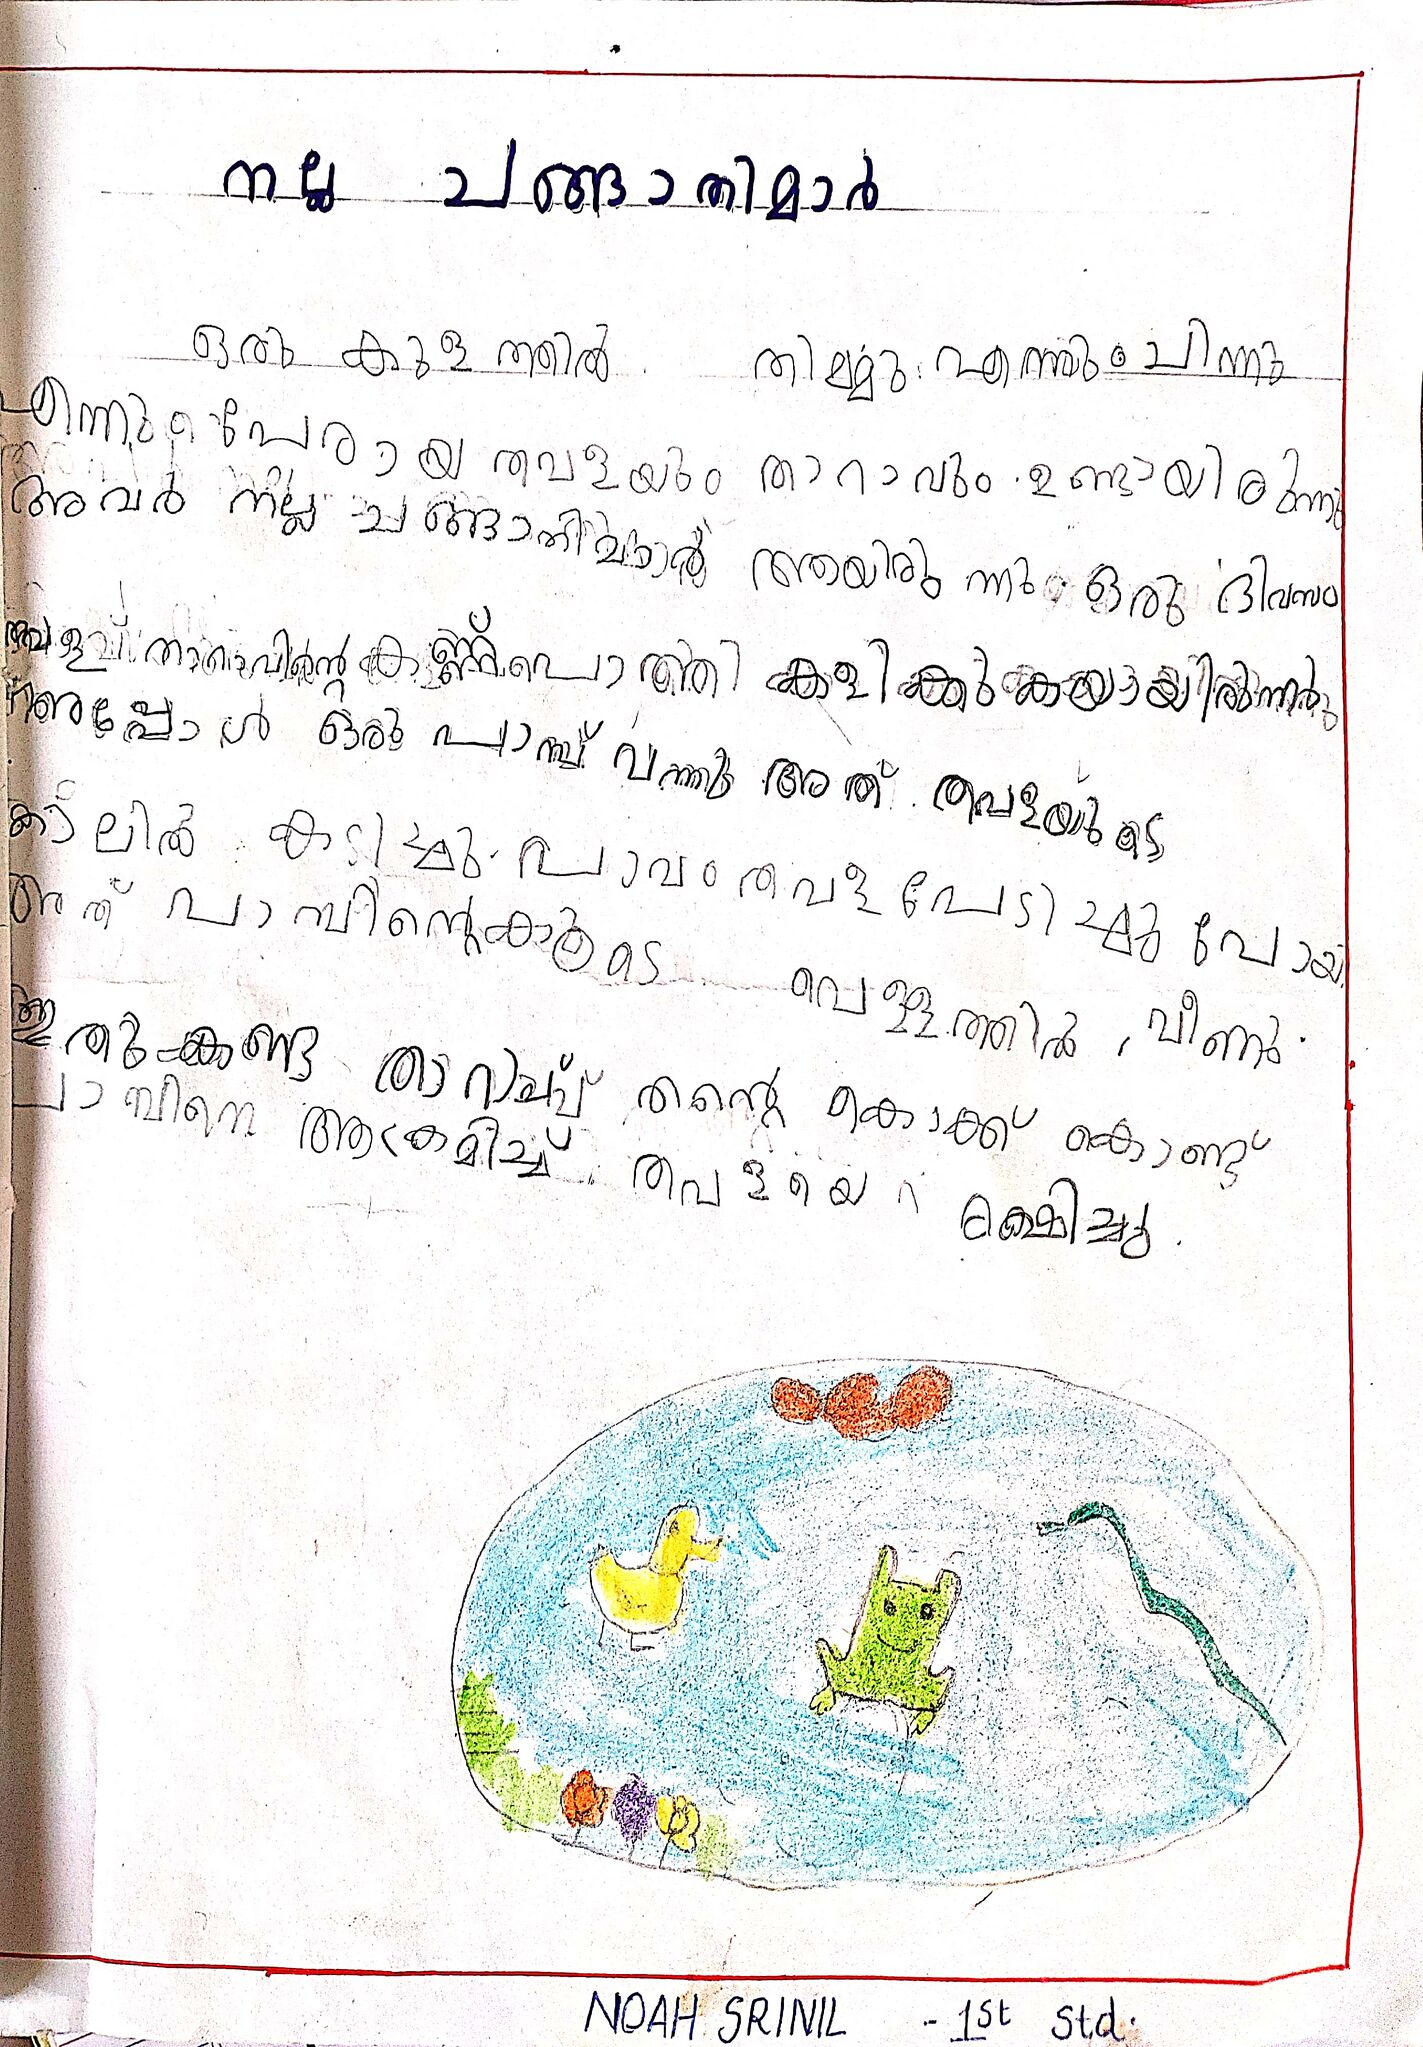 നല്ല ചങ്ങാതിമാർ
ഒരു കുളത്തിൽ തിലമ്മു എന്നും ചിന്നു
എന്നും പേരായ തവളയും താറാവും ഉണ്ടായിരുന്നു
അവർ നല്ല ചങ്ങാതിമാർ ആയിരുന്നു ഒരു ദിവസം
താറാവിന്റെ കണ്ണ് പൊത്തി കളിക്കുകയായിരുന്നു
അപ്പോൾ ഒരു പാമ്പ് വന്നു അത് തവളയുടെ
കാലിൽ കടിച്ചു. പാവം തവള പേടിച്ചു പോയി.
അത് പാമ്പിന്റെകൂടെ വെള്ളത്തിൽ വീണു.
ഇതുകണ്ട താറാവ് തന്റെ കൊക്ക് കൊണ്ട്
പാമ്പിനെ ആക്രമിച്ച് തവളയെ രക്ഷിച്ചു.
NOAH SRINIL - 1st Std.